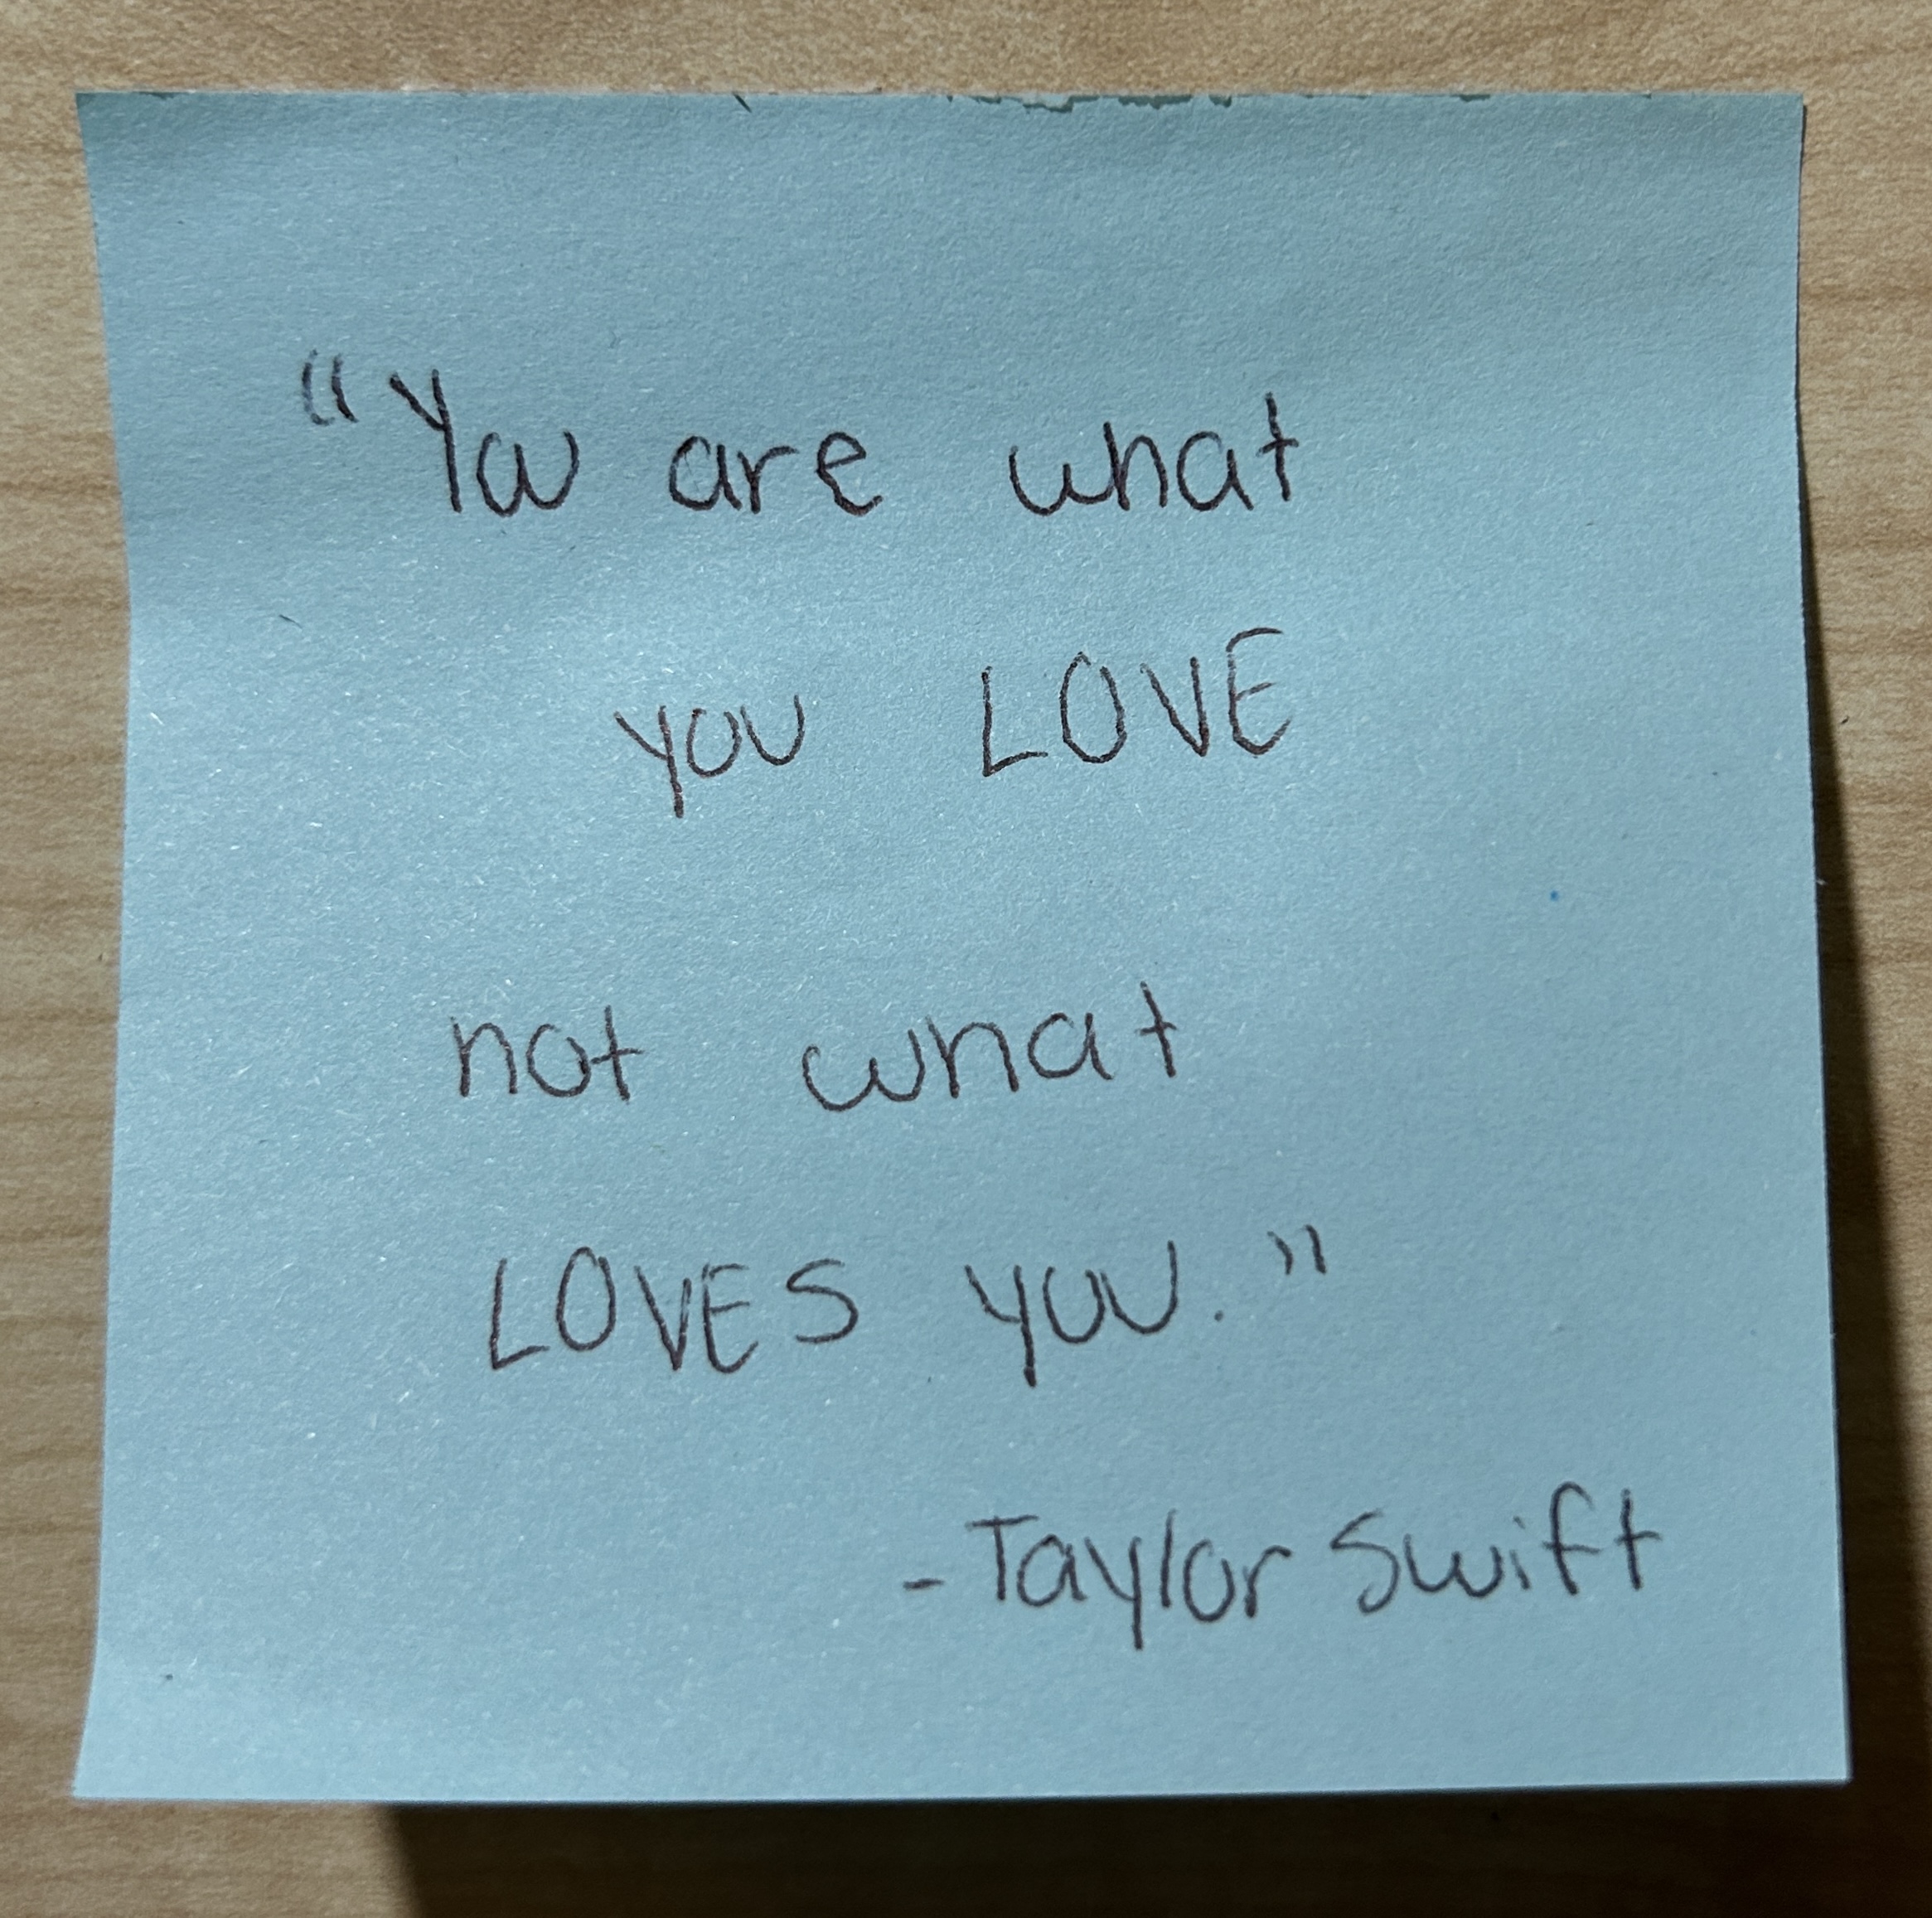 "You are what
you LOVE
not what
LOVES YOU."
-Taylor Swift